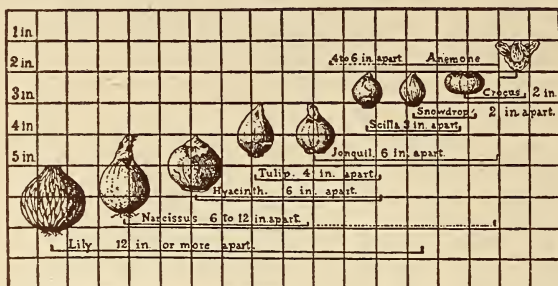 1 in.
4 to 6 in. apart Anemone
2 in.
Crocus 2 in.
3 in.
Snowdrop 2 in. apart.
Scilla 3 in. apart.
4 in.
Jonquil. 6 in. apart.
5 in.
Tulip. 4 in. apart.
Hyacinth. 6 in. apart.
Narcissus 6 to 12 in. apart.
Lily 12 in. or more apart.